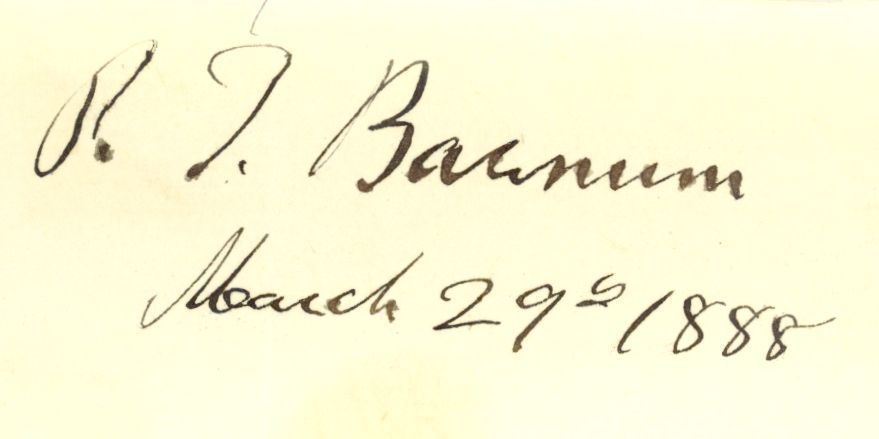 P. T. Barnum
March 29th 1888